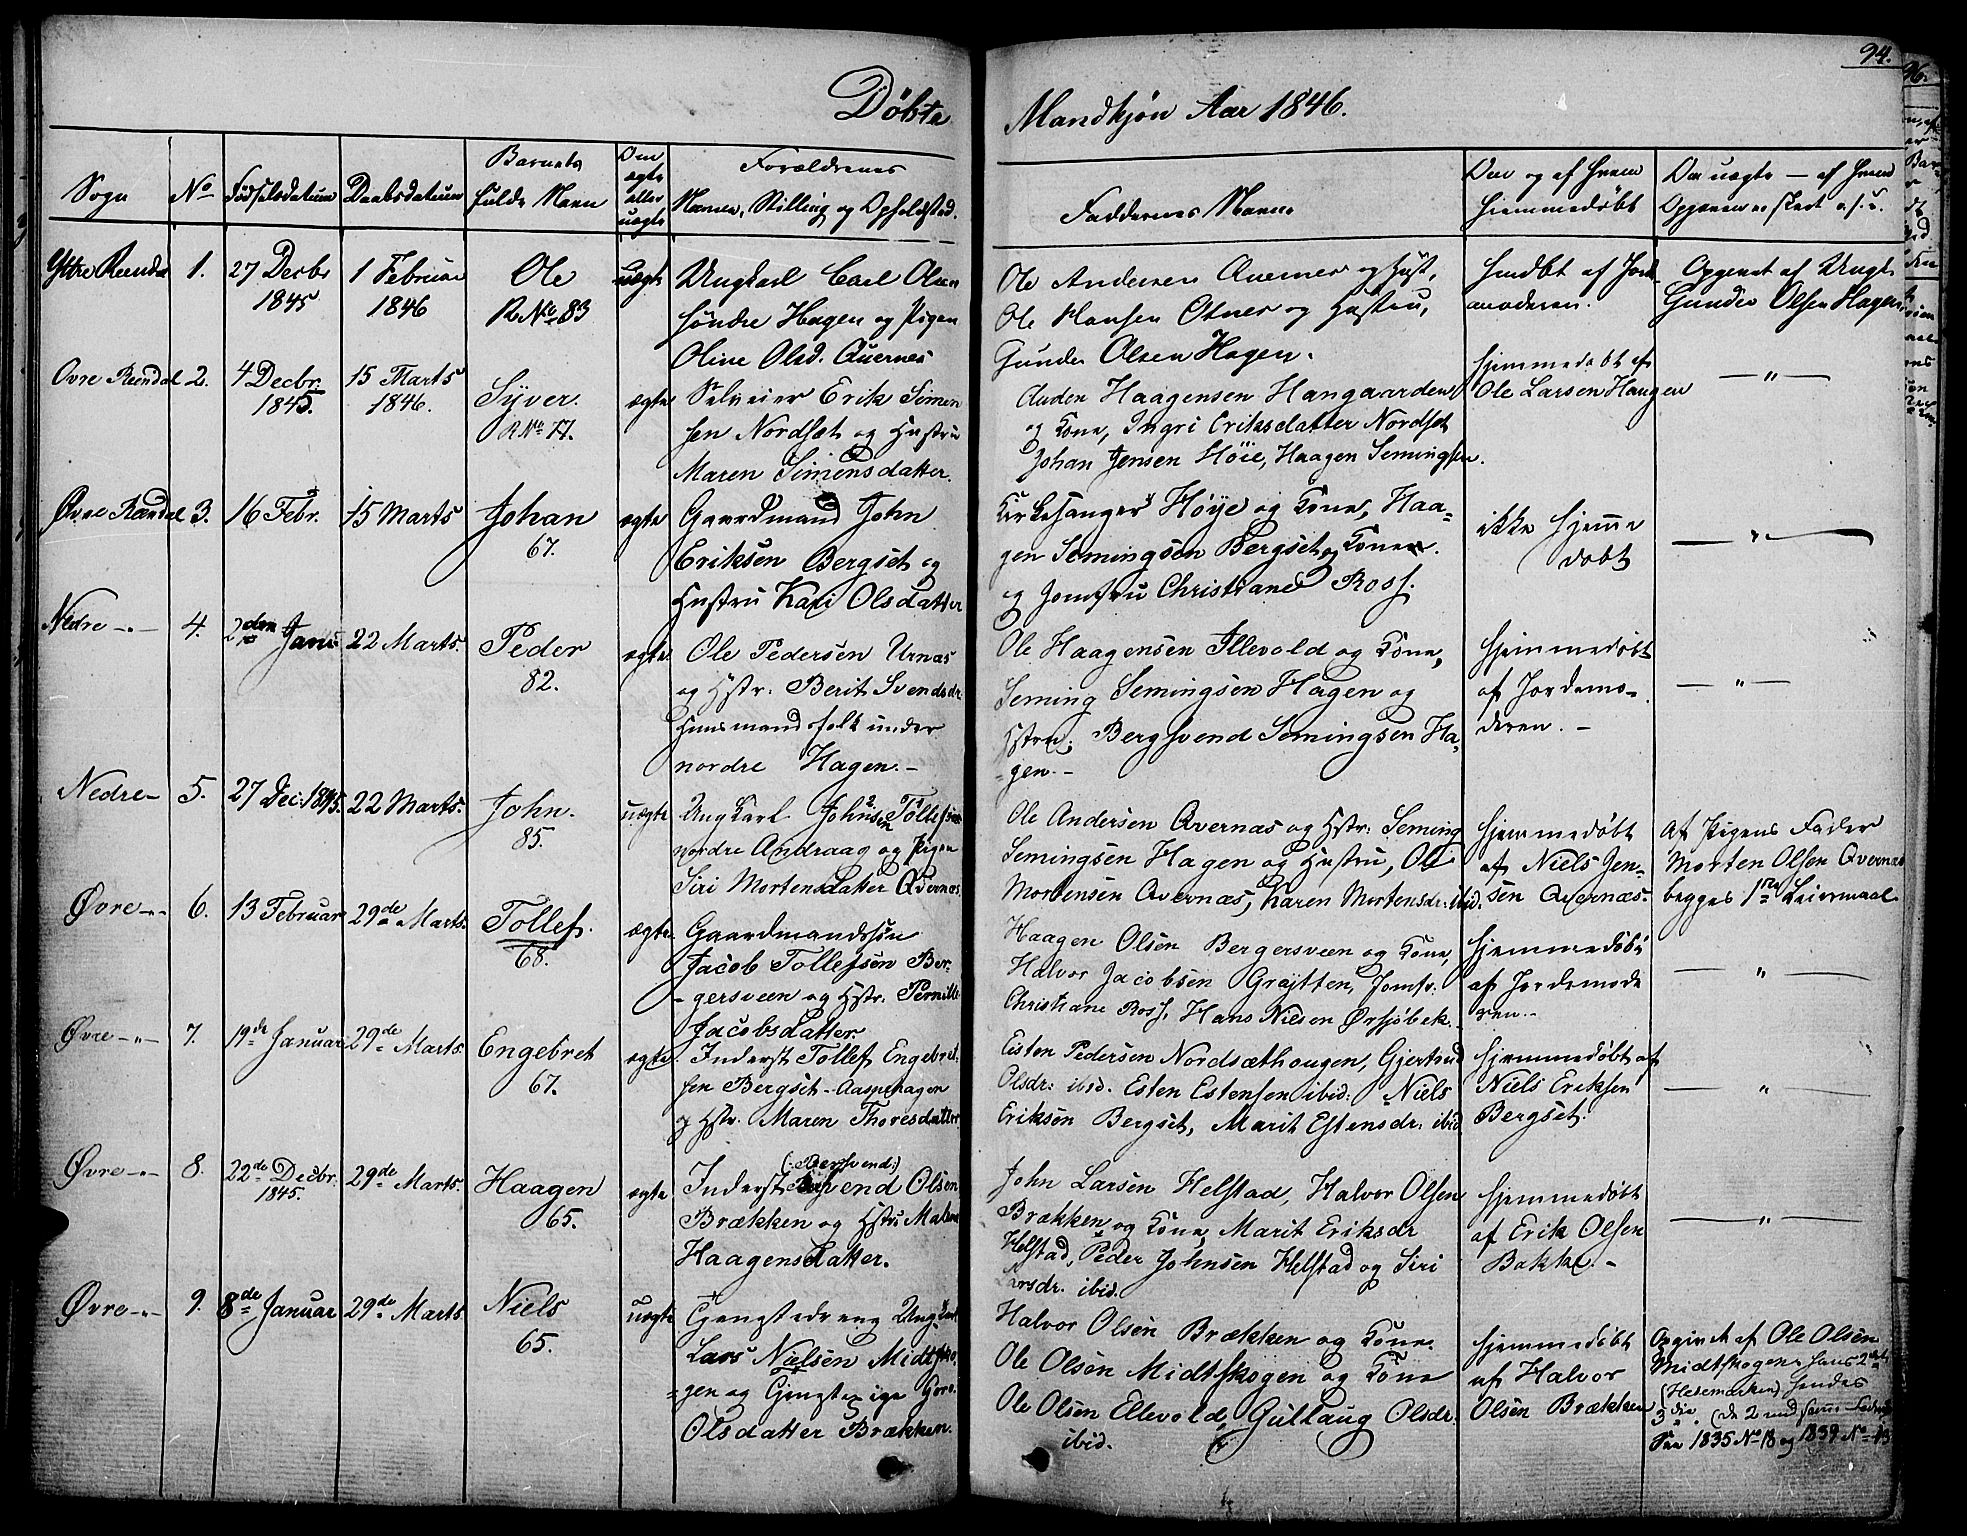 94.
Døbte Mandkjøn Aar 1846.
Sogn
No
Fødselsdatum
Daabsdatum
Barnets
fulde Navn
Om
ægte
eller
uægte
Forældrenes
Navne, Stilling og Opholdsted.
Faddernes Navne
Om og af hvem
hiemmedøbt
Om uægte — af hvem
Opgivenes skeet o. s. v.
Yttre Rendal
1.
27 Decbr
1845
1 Februar
1846
Ole
R No 83
uægte
Ungkarl Carl Olsen
søndre Hagen og Pigen
Oline Olsd. Quernes
Ole Andersen Quernes og Hust,
Ole Hansen Otnes og Hustru,
Gunder Olsen Hagen.
hmdbt af Jord
moderen.
Opgivet af Ungk.
Gunder Olsen Hagen
Ovre Rendal
2.
4 Decbr.
1845.
15 Marts
1846.
Syver.
R No 77.
ægte
Selveier Erik Simen
sen Nordset og Hustru
Maren Simensdatter.
Auden Haagensen Hangaarden
og Kone, Ingri Eriksdatter Nordset
Johan Jensen Höie, Haagen Semingsen.
hjemmedøbt af
Ole Larsen Haugen
— " —
Øvre Rendal
3.
16 Febr.
15 Marts
Johan
67.
ægte
Gaardmand John
Eriksen Bergset og
Hustru Kari Olsdatter
Kirkesanger Høye og Kone, Haa-
gen Semingsen Bergset og Kone.
og Jomfru Christiane Ross.
ikke hjemme
døbt
— " —
Nedre —"—
4.
2den Janr
22 Marts.
Peder
82.
ægte
Ole Pedersen Urnæs
og Hstr: Berit Svendsdr
Huusmandsfolk under
nordre Hagen.—
Ole Haagensen Illevold og Kone,
Seming Semingsen Hagen og
Hstru. Bergsvend Semingsen Ha-
gen.—
hjemmedøbt
af Jordemo-
deren. —
— " —
Nedre —
5.
27 Dec: 1845.
22 Marts.
John.
85.
uægte
Ungkarl Johnsen Tollefsen
nordre Andraag og Pigen
Siri Mortensdatter Qvernæs.
Ole Andersen Qvernæs og Hstr: Seming
Semingsen Hagen og Hustru, Ole
Mortensen Qvernæs, Karen Mortensdr: ibid.
hjemmedøbt
af Niels Jen-
sen Qvernæs.
Af Pigens Fader
Morten Olsen Qvernæs
begges 1ste Leiermaal
Øvre —"—
6.
13 Februar
29de Marts.
Tollef.
68.
ægte
Gaardmandssøn
Jacob Tollefsen Ber-
gersveen og Hstr: Pernille
Jacobsdatter.
Haagen Olsen Bergersveen og Kone,
Halvor Jacobsen Grøytten, Jomfr:
Christiane Ross, Hans Nielsen Ørsjøbek.
hjemmedøbt
af Jordemode
ren.—
— " —
Øvre —"—
7.
19de Januar
29de Marts.
Engebret
67.
ægte
Inderst Tollef Engebret
sen Bergset-Aaspehagen
og Hstr. Maren Thoresdatter
Eisten Pedersen Nordsæthougen, Gjertrud
Olsdr: ibid. Esten Estensen ibid: Niels
Eriksen Bergset, Marit Estensdr: ibid.
hjemmedøbt af
Niels Eriksen
Bergset.
— " —
Øvre —"—
8.
22de Decbr.
1845.
29de Marts.
Haagen
65.
ægte
(: Bersvend:)
Inderst Olsen
Brækken og Hstru Malene
Haagensdatter.
John Larsen Helstad, Halvor Olsen
Brækken og Kone, Marit Eriksdr
Helstad, Peder Johnsen Helstad og Siri
Larsdr. ibid.
hjemmedøbt
af Erik Olsen
Bakke. —
— " —
Øvre —"—
9.
8de Januar
29de Marts.
Niels
65.
uægte
Gjengstedreng Ungkarl
Lars Nielsen Midtsko-
gen og Gjengstepige Goro
Olsdatter Brækken.
Halvor Olsen Brækken og Kone.
Ole Olsen Midtskogen og Kone
Ole Olsen Ellevold, Gullaug Olsdr:
ibid.
hjemmedøbt
af Halvor
Olsen Brækken
Opgivet af Ole Olsen
Midtskogen. hans 2det
(Hedemarken) hendes
3die. (de 2 med samme
See 1835 No 18 og 1839 No 13